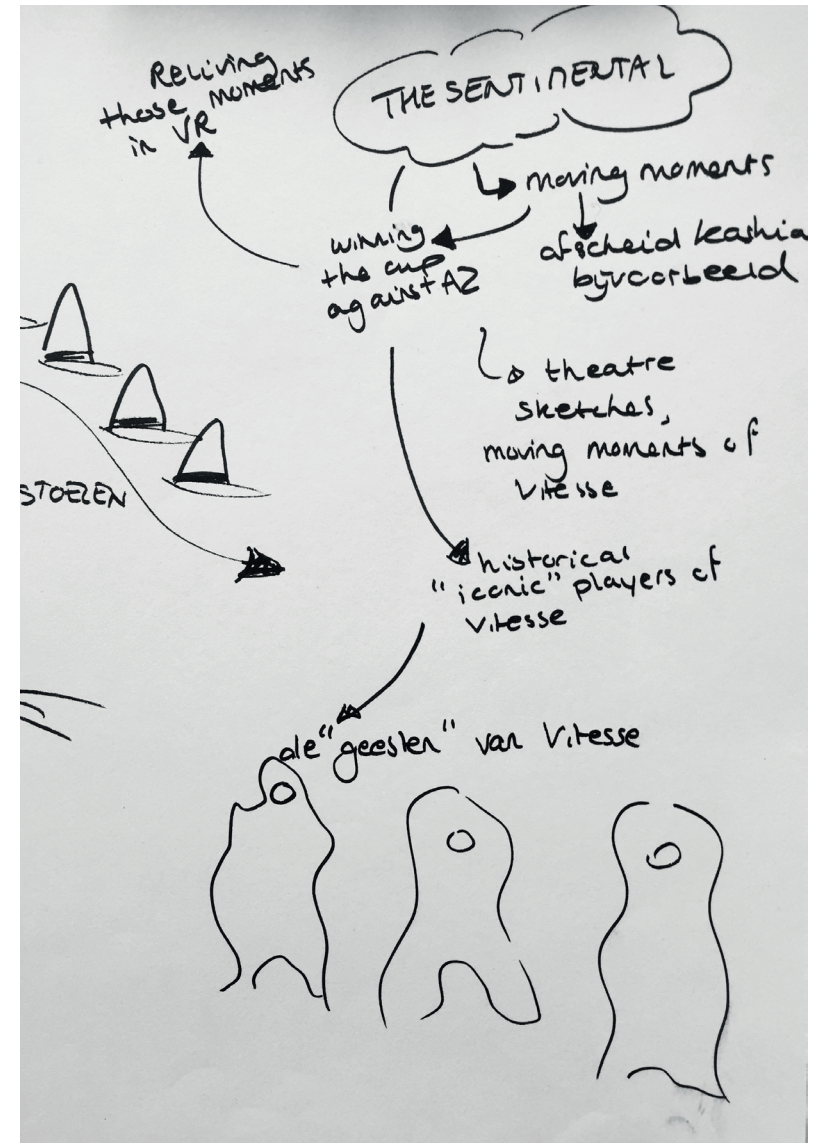 Reliving
those moments
in VR
THE SENTIMENTAL
moving moments
winning
the cup
against AZ
afscheid kashia
bijvoorbeeld
theatre
sketches,
moving moments of
Vitesse
STOELEN
historical
"iconic" players of
Vitesse
de "geesten" van Vitesse